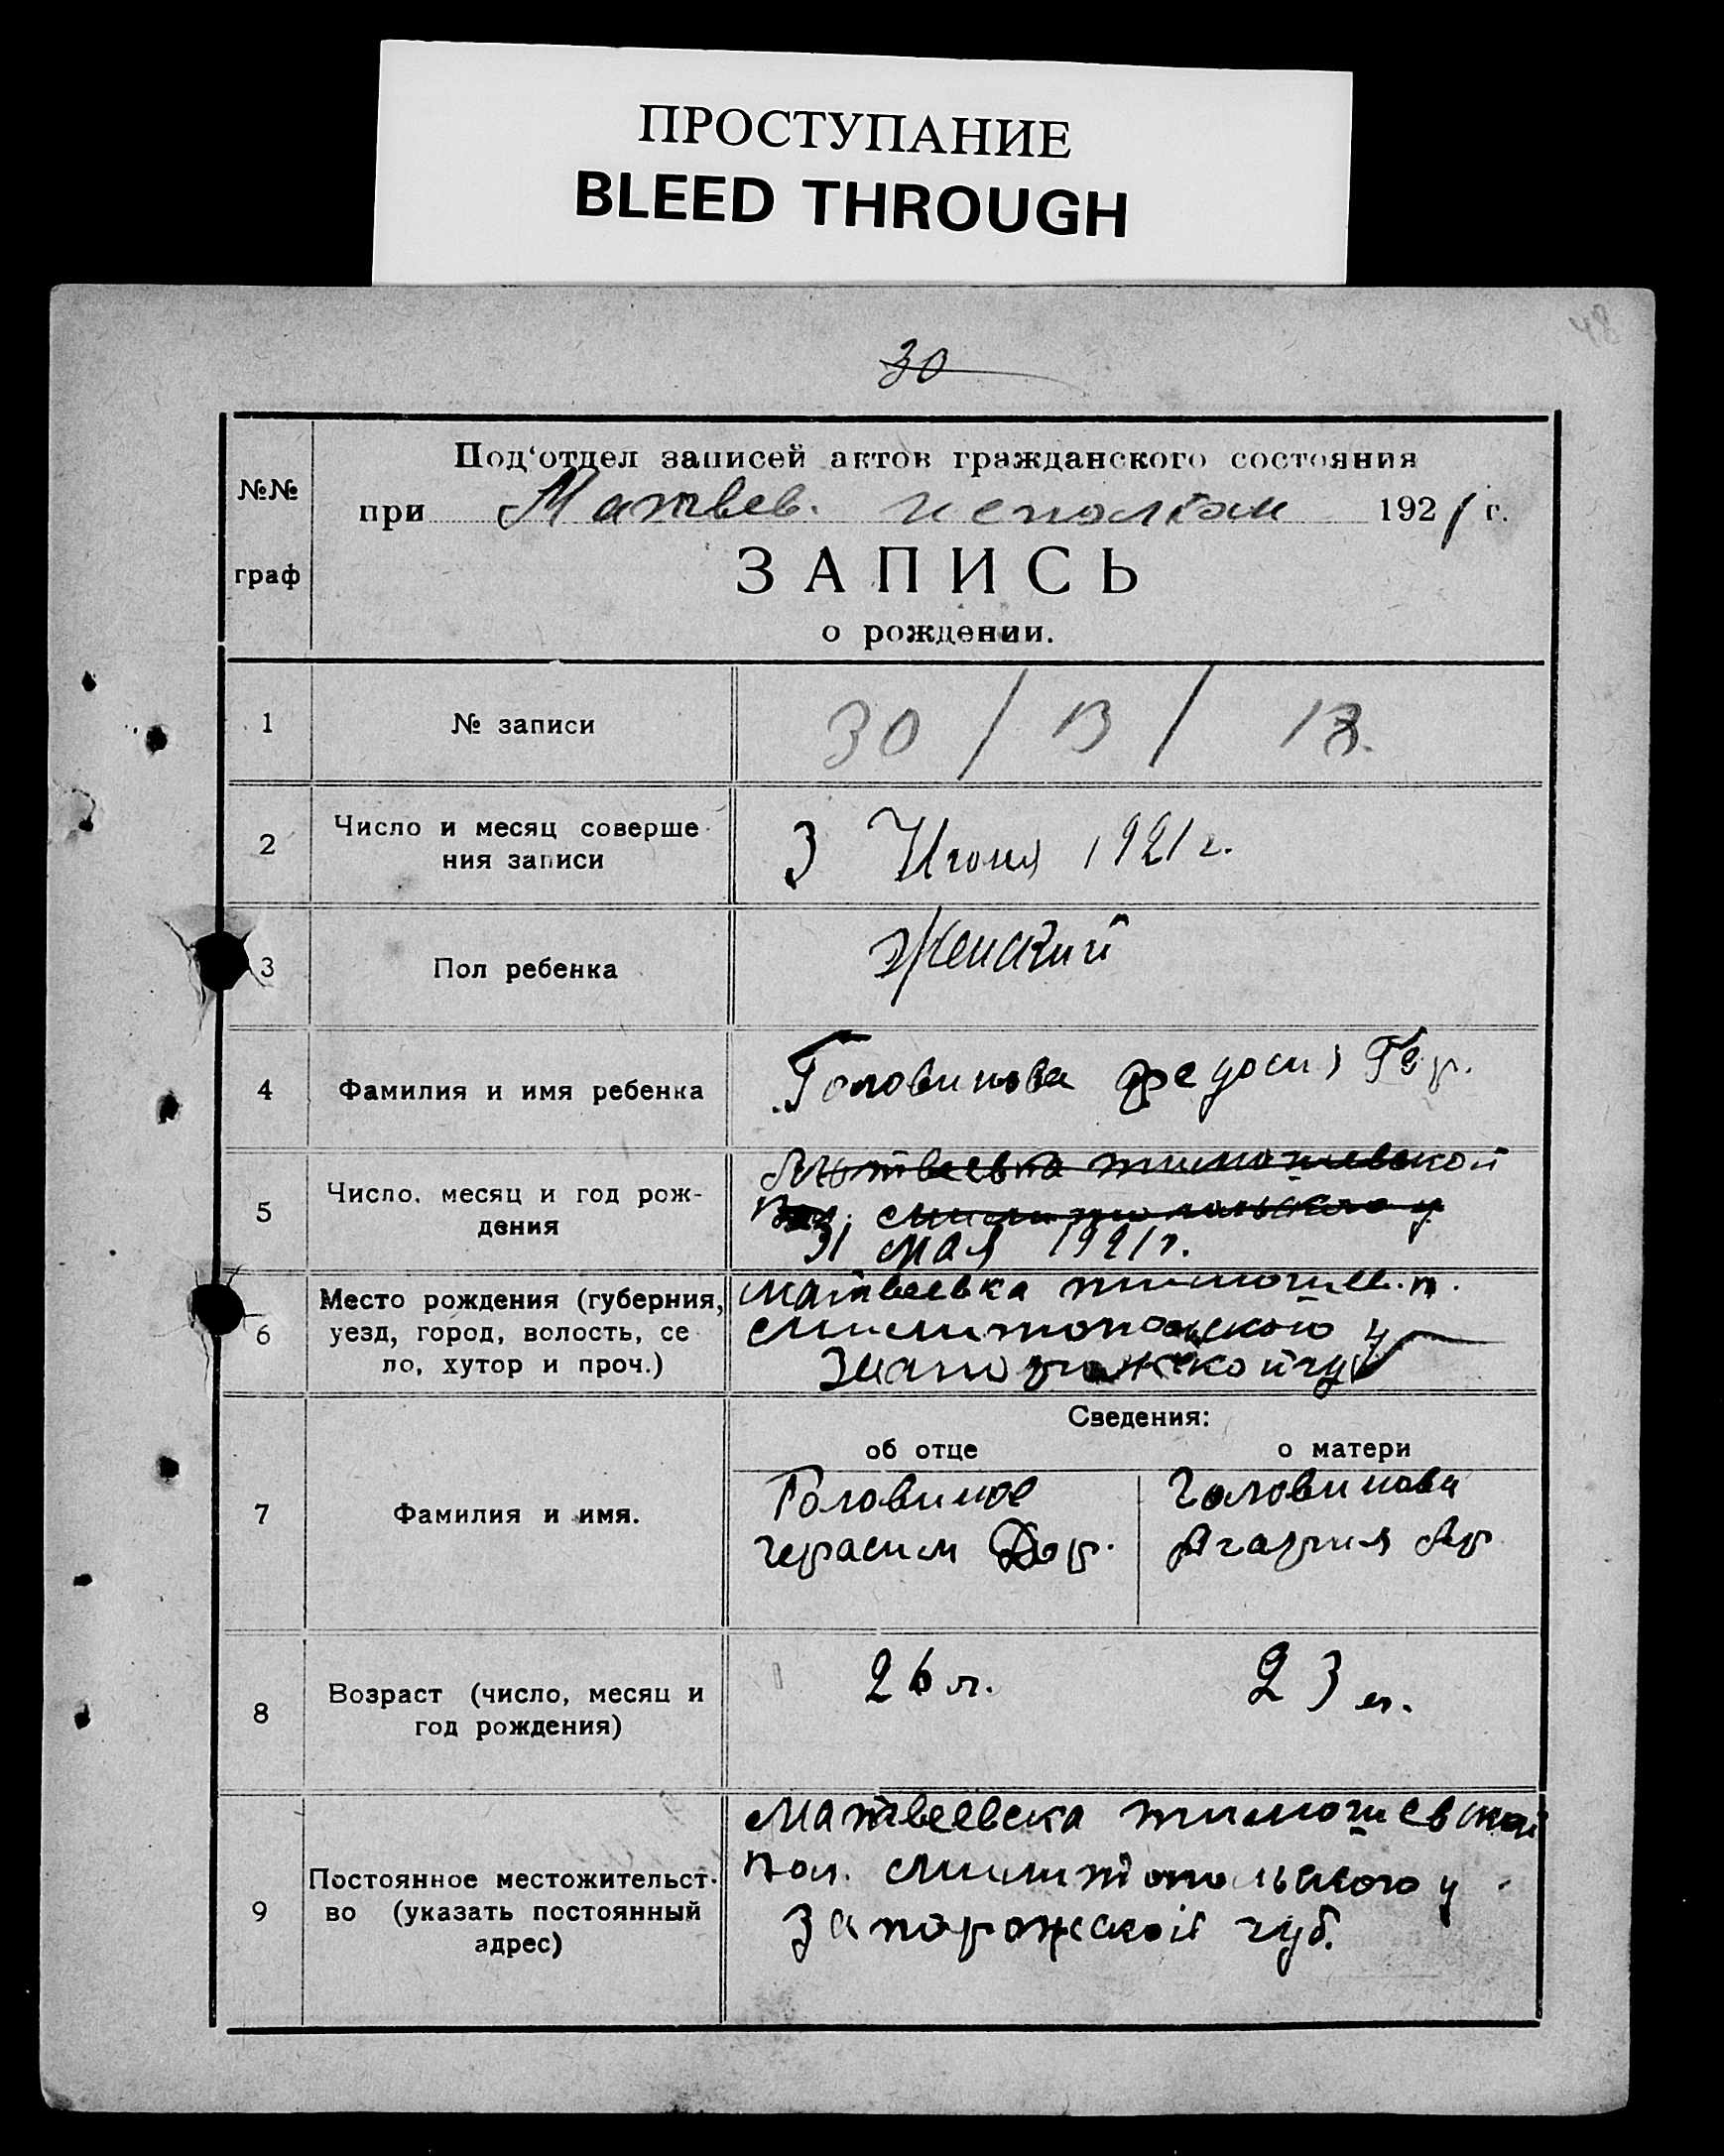 ПРОСТУПАНИЕ
BLEED THROUGH
30
№№
граф
Под'отдел записей актов гражданского состояния
при Матвев. исполком 1921 г.
ЗАПИСЬ
о рождении.
1
№ записи
30 / В / 18.
2
Число и месяц соверше-
ния записи
3 Июня 1921 г.
3
Пол ребенка
Женский
4
Фамилия и имя ребенка
Головинова Федосия Гер.
5
Число, месяц и год рож-
дения
31 мая 1921 г.
6
Место рождения (губерния,
уезд, город, волость, се
ло, хутор и проч.)
Матвеевка
у
Сведения:
об отце
о матери
7
Фамилия и имя.
Головинов
Герасим
Головинова
Агапия
8
Возраст (число, месяц и
год рождения)
26 л.
23 л.
9
Постоянное местожительст-
во (указать постоянный
адрес)
Матвеевска тимошевской
Мелитопольского у
Запорожской губ.